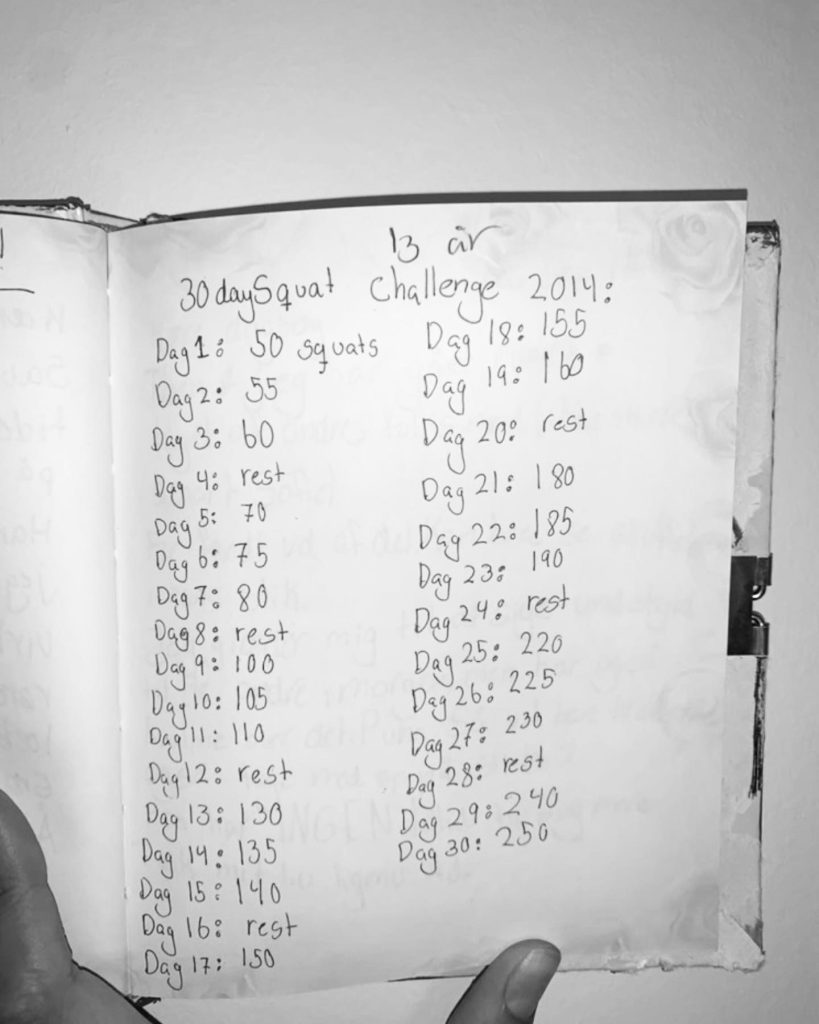 13 år
30 day Squat Challenge 2014:
Dag 1: 50 squats
Dag 2: 55
Dag 3: 60
Dag 4: rest
Dag 5: 70
Dag 6: 75
Dag 7: 80
Dag 8: rest
Dag 9: 100
Dag 10: 105
Dag 11: 110
Dag 12: rest
Dag 13: 130
Dag 14: 135
Dag 15: 140
Dag 16: rest
Dag 17: 150
Dag 18: 155
Dag 19: 160
Dag 20: rest
Dag 21: 180
Dag 22: 185
Dag 23: 190
Dag 24: rest
Dag 25: 220
Dag 26: 225
Dag 27: 230
Dag 28: rest
Dag 29: 240
Dag 30: 250